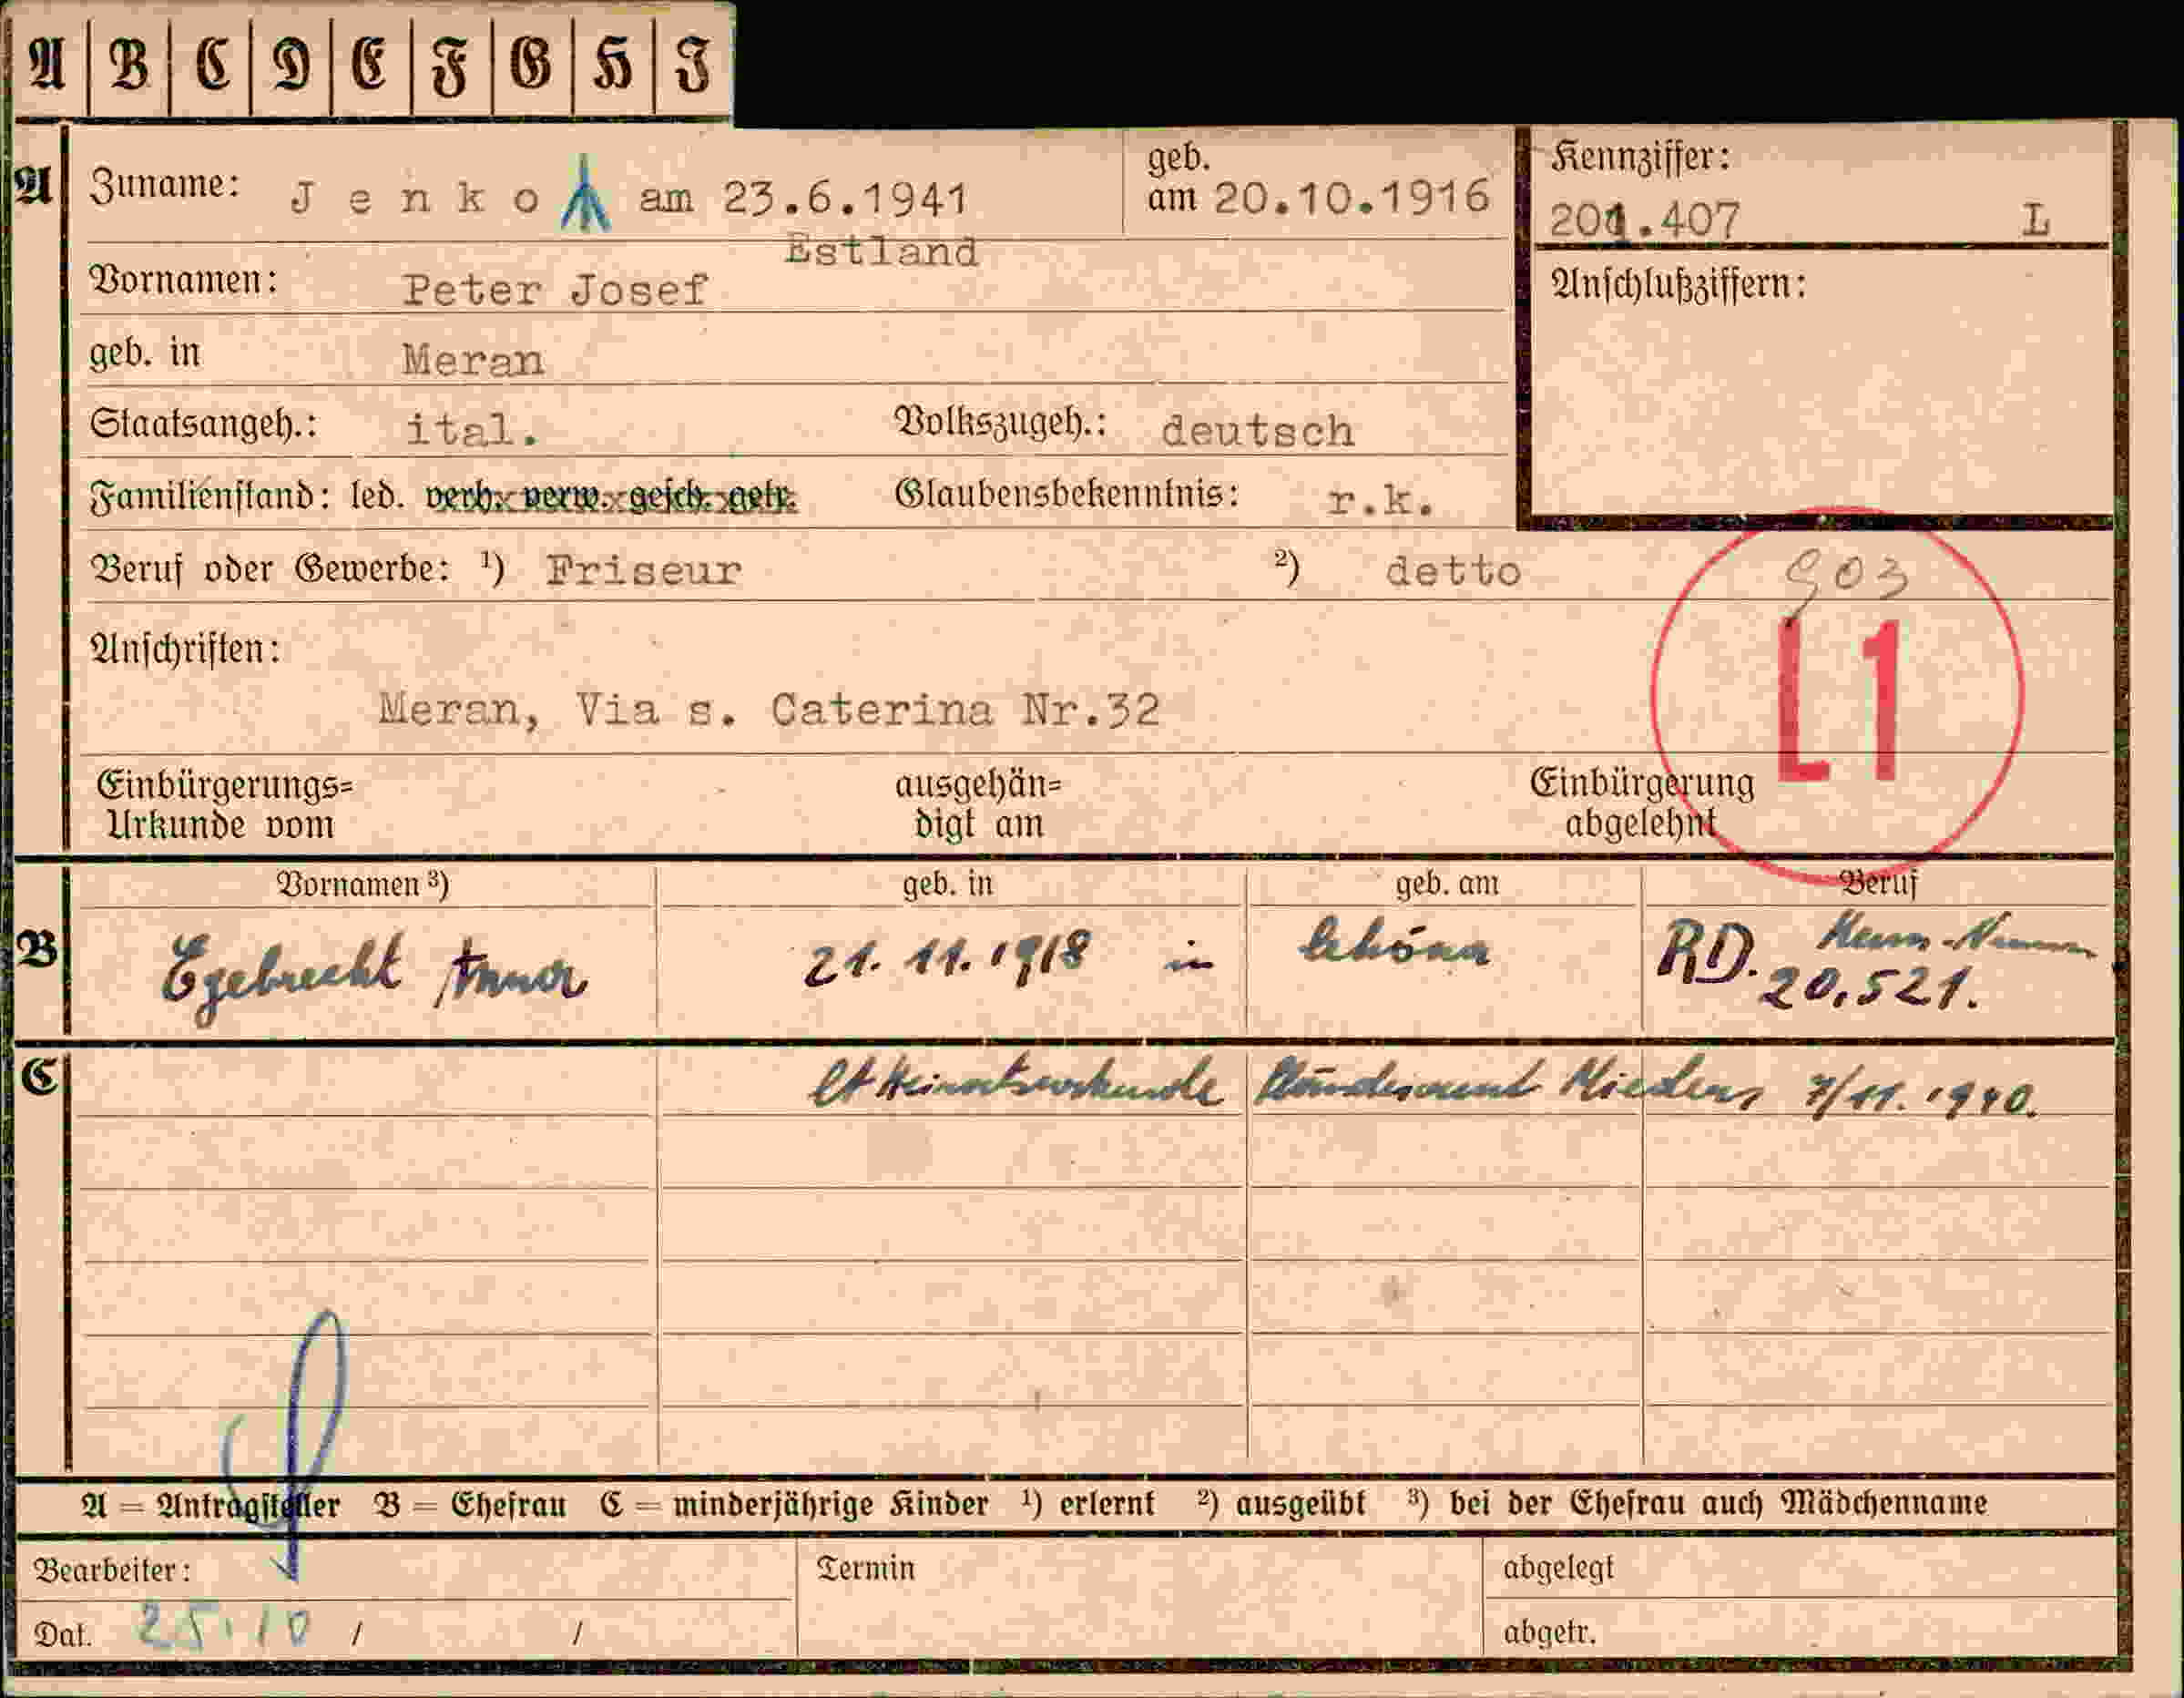 A B C D E F G H I
A Zuname: Jenko am 23.6.1941 geb. am 20.10.1916 Kennziffer: 201.407 L
Estland
Vornamen: Peter Josef Anschlußziffern:
geb. in Meran
Staatsangeh.: ital. Volkszugeh.: deutsch
Familienstand: led. verh. verw. gesch. getr. Glaubensbekenntnis: r.k.
Beruf oder Gewerbe: ¹) Friseur ²) detto 903
Anschriften:
L1
Meran, Via s. Caterina Nr.32
Einbürgerungs= ausgehän= Einbürgerung
Urkunde vom digt am abgelehnt
Vornamen ³) geb. in geb. am Beruf
B Egebrecht Anna 21. 11. 1918 in Schöna RD. 20.521.
C lt Heiratsurkunde 7/11. 1940.
A = Antragsteller B = Ehefrau C = minderjährige Kinder ¹) erlernt ²) ausgeübt ³) bei der Ehefrau auch Mädchenname
Bearbeiter: Termin abgelegt
Dat. 25.10 / / abgetr.